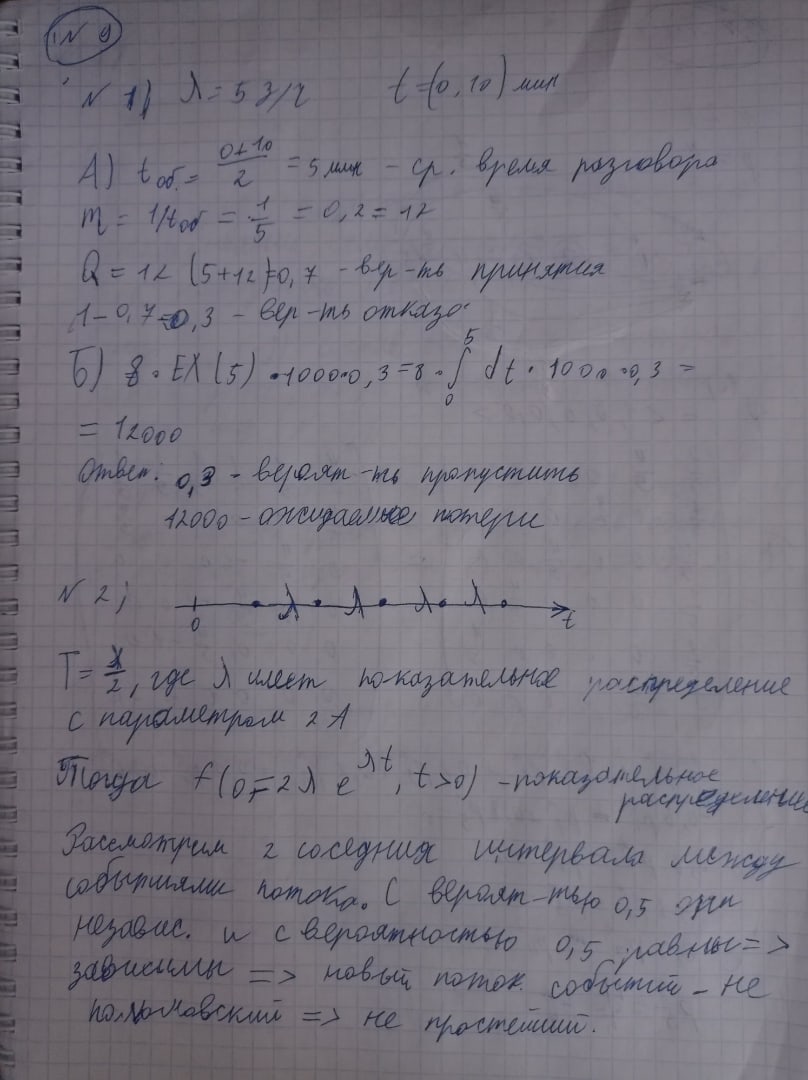 N 9
N 1) λ = 5 з/ч t = (0, 10) мин
А) t об. = (0+10)/2 = 5 мин - ср. время разговора
m = 1/tоб = 1/5 = 0,2 = 12
Q = 12 (5+12)=0,7 - вер-ть принятия
1-0,7=0,3 - вер-ть отказа
Б) 8 · EX(5) · 1000·0,3 = 8 · ∫₀⁵ dt · 1000 · 0,3 =
= 12000
Ответ: 0,3 - вероят-ть пропустить
12000 - ожидаемые потери
N 2) 0 λ λ λ λ t
T = λ/2, где λ имеет показательное распределение
с параметром 2λ
Тогда f(0,=2λ e^λt, t>0) - показательное
распределение
Рассмотрим 2 соседних интервала между
событиями потока. С вероят-тью 0,5 они
независ. и с вероятностью 0,5 равны =>
зависимы => новый поток событий - не
=> не простейший.